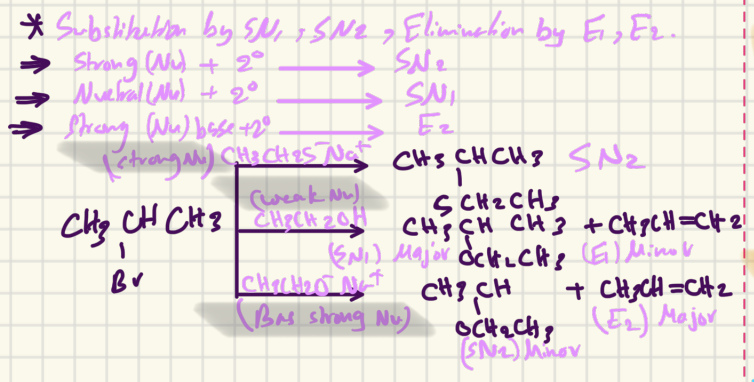 * Substitution by SN1, SN2, Elimination by E1, E2.
⇒ Strong (Nu) + 2° ⟶ SN2
⇒ Nuetral (Nu) + 2° ⟶ SN1
⇒ Strong (Nu) base +2° ⟶ E2
(strong Nu) CH3CH2S⁻Na⁺ CH3 CHCH3 SN2
S CH2CH3
(weak Nu)
CH3CH2OH CH3 CH CH3 + CH3CH=CH2
CH3 CH CH3 (SN1) Major OCH2CH3 (E1) Minor
Br CH3CH2O⁻Na⁺ CH3 CH + CH3CH=CH2
(Bas strong Nu) OCH2CH3 (E2) Major
(SN2) Minor